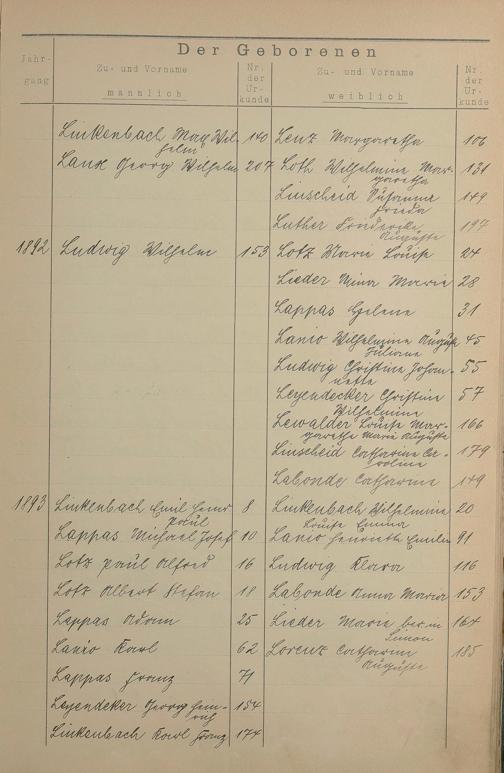 Der Geborenen
Jahr-
gang
Zu- und Vorname
männlich
Nr.
der
Ur-
kunde
Zu- und Vorname
weiblich
Nr.
der
Ur-
kunde
Linkenbach Max Wil- 140 Lenz Margaretha 106
helm
Laux Georg Wilhelm 207 Loth Wilhelmine Mar- 131
garetha
Linscheid Susanna 149
Frieda
Luther Friedericke 197
Auguste
1892 Ludwig Wilhelm 153 Lotz Marie Louise 24
Lieder Mina Marie 28
Lappas Helene 31
Lanio Wilhelmine Auguste 45
Juliane
Ludwig Christine Johan- 55
nette
Leyendecker Christine 57
Wilhelmine
Lewalder Louise Mar- 166
garethe Marie Auguste
Linscheid Catharina Ca- 179
roline
Labonde Catharina 149
1893 Linkenbach Emil Heinr 8 Linkenbach Wilhelmine 20
Paul Louise Emma
Lappas Michael Josef 10 Lanio Henriette Emilie 91
Lotz Paul Alfred 16 Ludwig Klara 116
Lotz Albert Stefan 18 Labonde Anna Maria 153
Lappas Adam 25 Lieder Marie 164
Simon
Lanio Karl 62 Lorenz Catharina 185
Auguste
Lappas Franz 71
Leyendeker Georg Hein- 154
rich
Linkenbach Karl Franz 174